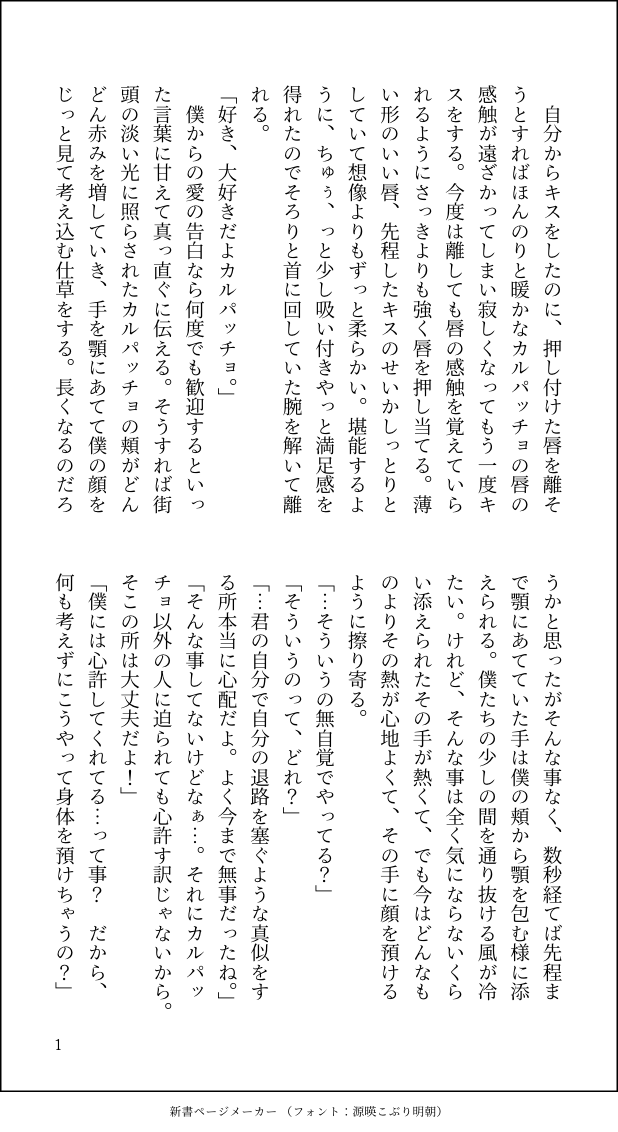 自分からキスをしたのに、押し付けた唇を離そ
うとすればほんのりと暖かなカルパッチョの唇の
感触が遠ざかってしまい寂しくなってもう一度キ
スをする。今度は離しても唇の感触を覚えていら
れるようにさっきよりも強く唇を押し当てる。薄
い形のいい唇、先程したキスのせいかしっとりと
していて想像よりもずっと柔らかい。堪能するよ
うに、ちゅぅ、っと少し吸い付きやっと満足感を
得れたのでそろりと首に回していた腕を解いて離
れる。
「好き、大好きだよカルパッチョ。」
　僕からの愛の告白なら何度でも歓迎するといっ
た言葉に甘えて真っ直ぐに伝える。そうすれば街
頭の淡い光に照らされたカルパッチョの頬がどん
どん赤みを増していき、手を顎にあてて僕の顔を
じっと見て考え込む仕草をする。長くなるのだろ
うかと思ったがそんな事なく、数秒経てば先程ま
で顎にあてていた手は僕の頬から顎を包む様に添
えられる。僕たちの少しの間を通り抜ける風が冷
たい。けれど、そんな事は全く気にならないくら
い添えられたその手が熱くて、でも今はどんなも
のよりその熱が心地よくて、その手に顔を預ける
ように擦り寄る。
「…そういうの無自覚でやってる？」
「そういうのって、どれ？」
「…君の自分で自分の退路を塞ぐような真似をす
る所本当に心配だよ。よく今まで無事だったね。」
「そんな事してないけどなぁ…。それにカルパッ
チョ以外の人に迫られても心許す訳じゃないから。
そこの所は大丈夫だよ！」
「僕には心許してくれてる…って事？　だから、
何も考えずにこうやって身体を預けちゃうの？」
1
新書ページメーカー（フォント：源暎こぶり明朝）